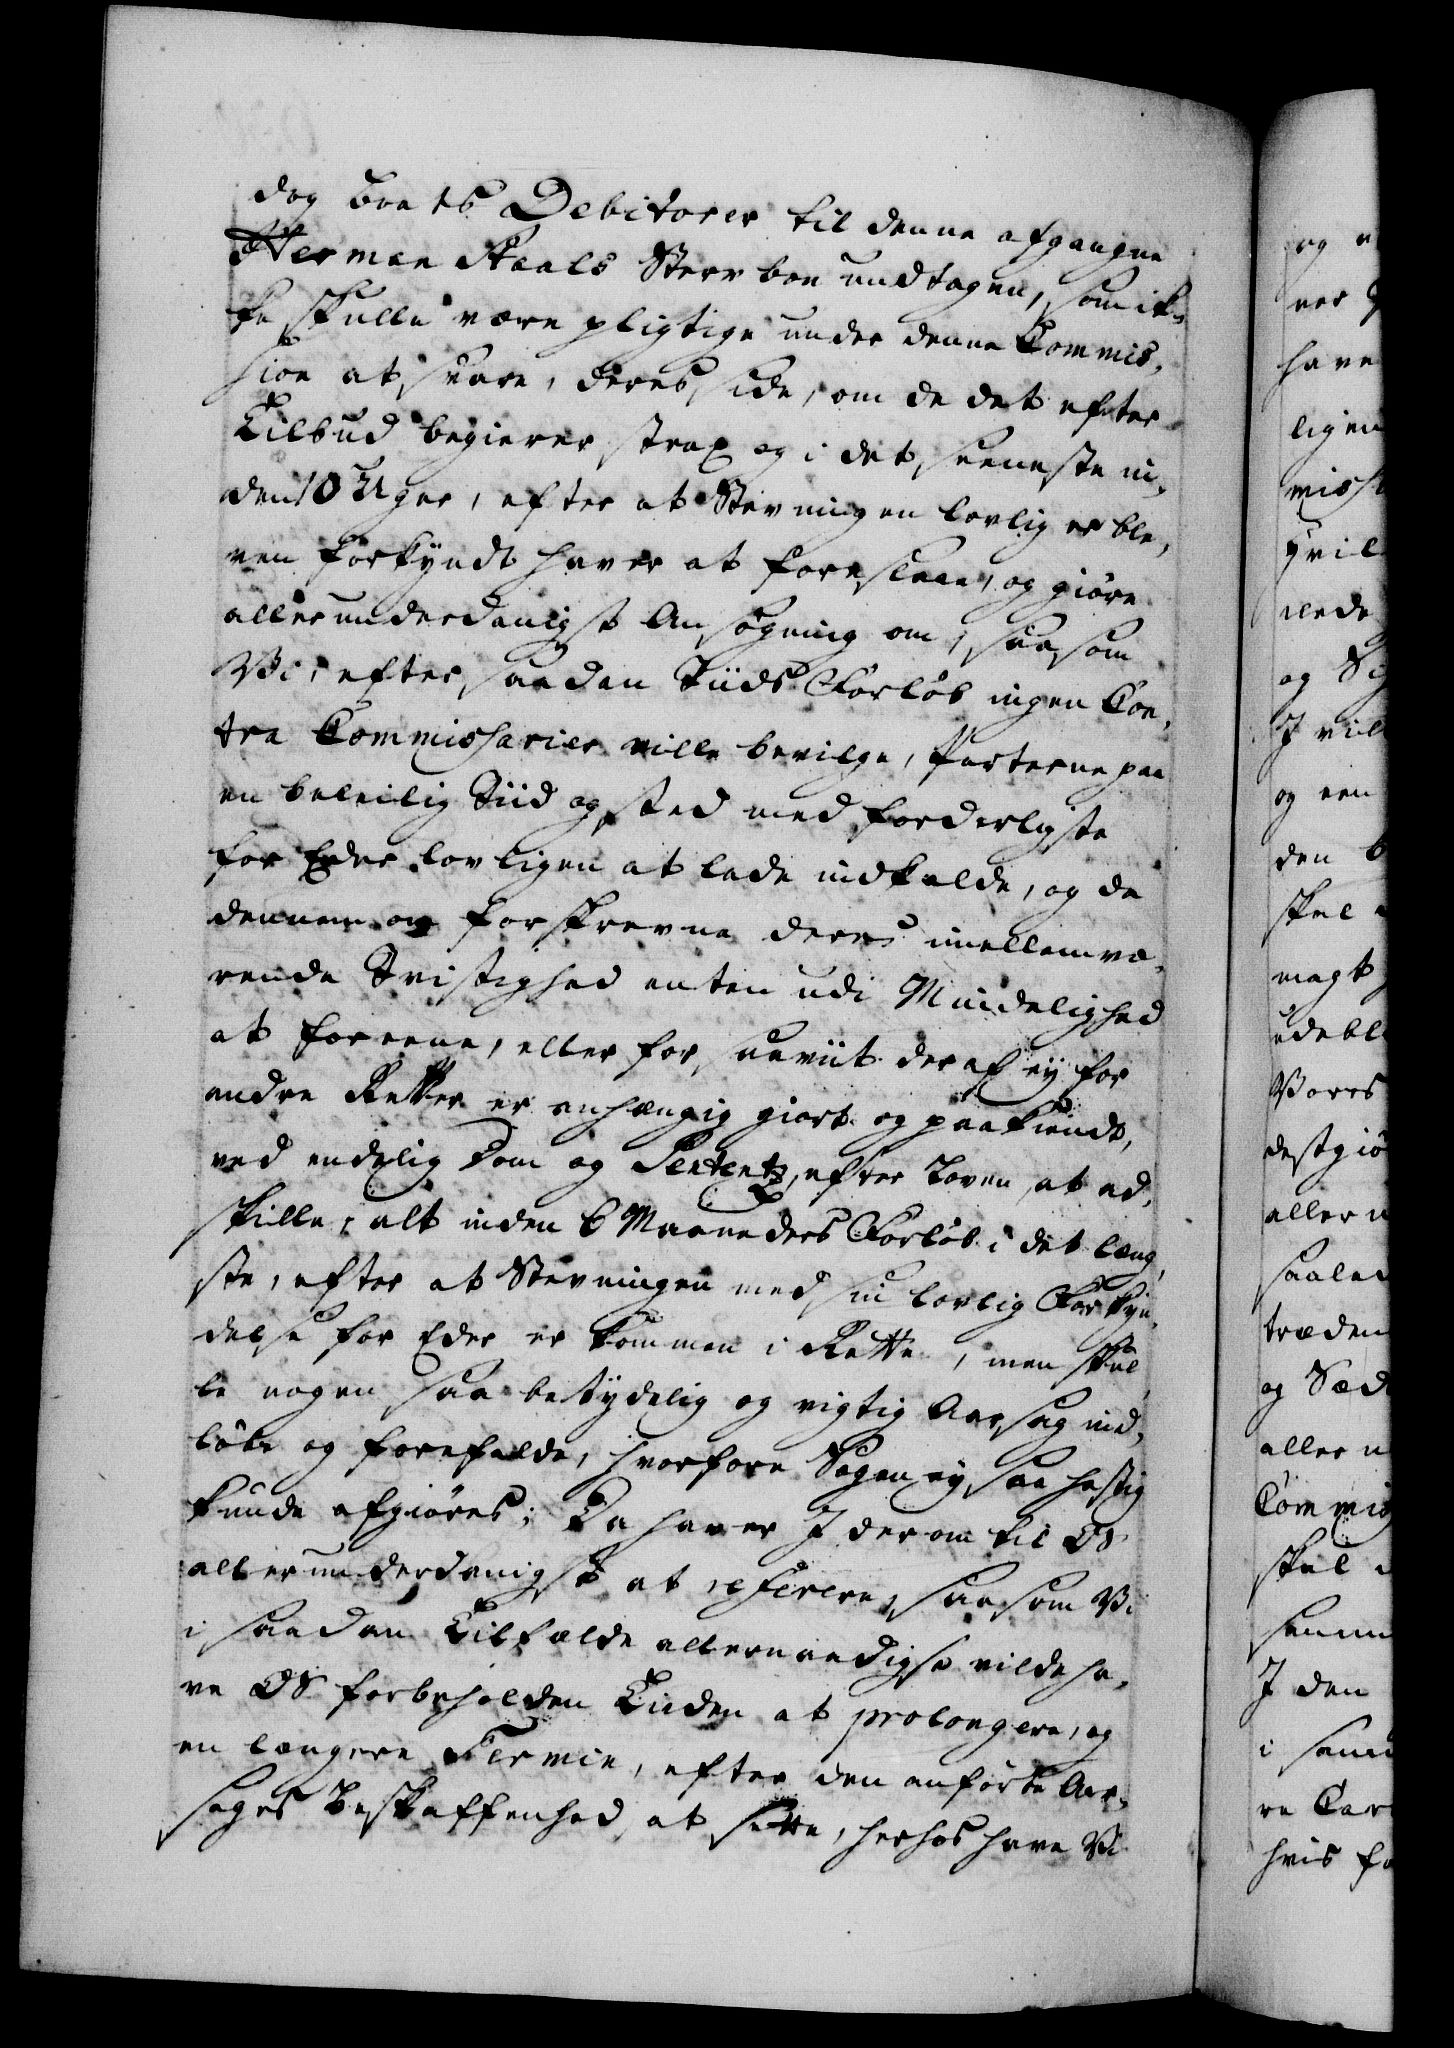 dog boets Debitorer til denne afgangne
Herman Staals Sterv boe undtagen, som ik-
ke skulle være pligtige under denne Commis-
sion at svare, deres side, om de det efter
Tilbud begierer strax og i det seeneste in-
den 10 Uger, efter at Stevningen lovlig er ble-
ven forkyndt haver at foreslaae, og giøre
allerunderdanigst Ansøgning om, saasom
Vi, efter saadan Tiids Forløb ingen Con-
tra Commissarier ville bevilge, Parterne paa
en beleilig Tiid og sted med forderligste
for Eder lovligen at lade indkalde, og de
dennem og forskrevne deres imellemvæ-
rende Tvistighed enten udi Mindelighed
at foreene, eller for saaviit deraf ey for
andre Retter er anhængig giort og paakiendt,
ved endelig Dom og Sententz, efter Loven, at ad-
skille, alt inden 6 Maaneders Forløb i det læng-
ste, efter at Stevningen med sin lovlig Forkyn-
delse for Eder er kommen i Rette, men skul-
le nogen saa betydelig og vigtig Aarsag ind-
løbe og forefalde, hvorfore Sagen ey saa hastig
kunde afgiøres; Da haver I derom til OS
allerunderdanigst at referere, saasom Vi
i saadan Tilfælde allernaadigst vilde ha-
ve OS forbeholden Tiiden at prolongere, og
en længere Termin, efter den anførte Aar-
sages Beskaffenhed, at sætte, herhos have Vi